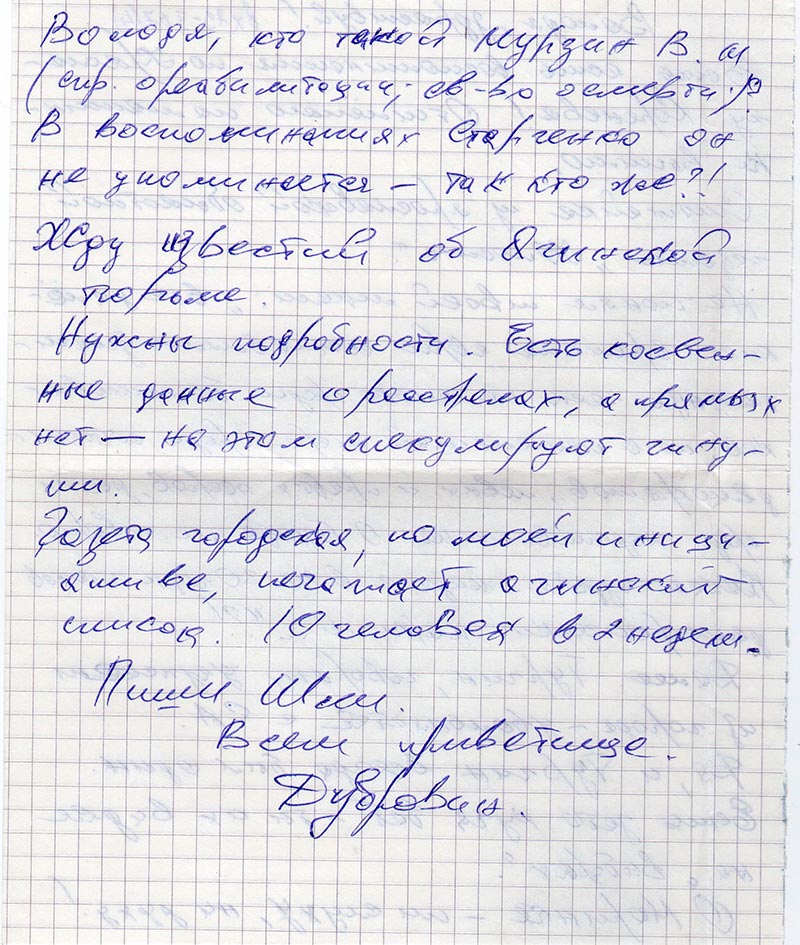 Володя, кто такой Мурзин В. М
(спр. о реабилитации, св-во о смерти.)?
В воспоминаниях Старченко он
не упоминается – так кто же?!
Жду известий об Ачинской
тюрьме.
Нужны подробности. Есть косвен-
ные данные о расстрелах, а прямых
нет — на этом спекулируют чину-
ши.
Газета городская, по моей иници-
ативе, печатает ачинский
список. 10 человек в 2 недели.
Пиши. Шли.
Всем приветище.
Дубровин.